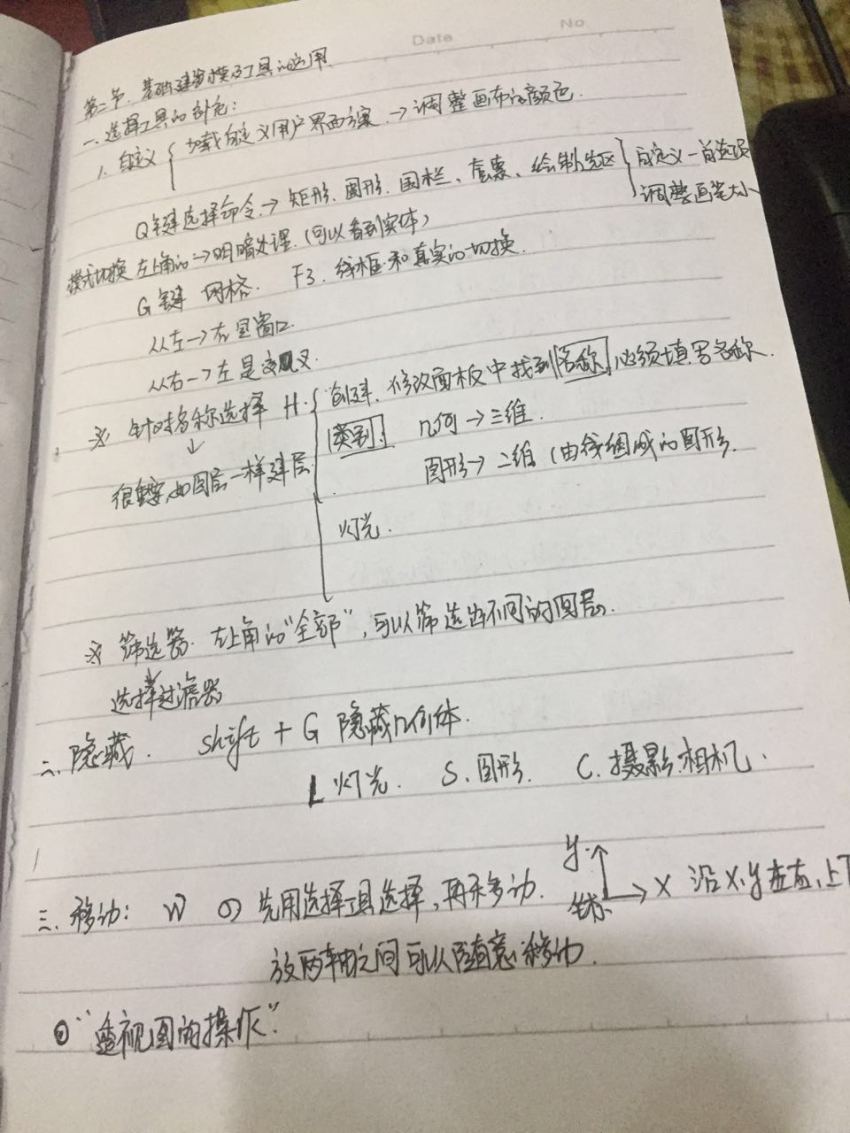 Date No
第二节. 基础建模及工具的应用
一. 选择工具的补充:
1. 自定义 { 加载自定义用户界面方案. → 调整画布的颜色.
Q键选择命令. → 矩形. 圆形. 围栏、套索、绘制选区 } 自定义 - 首选项
调整画笔大小
模式切换 左上角的 → 明暗处理. (可以看到实体)
G键 网格. F3. 线框和真实的切换.
从左 → 右是窗口.
从右 → 左是交叉.
※ 针对名称选择 H. { 创建、修改面板中找到 名称 必须填写名称.
↓
类别: 几何 → 三维.
很重要, 如图层一样建层 图形 → 二维 (由线组成的图形.
灯光.
※ 筛选器. 左上角的“全部”, 可以筛选出不同的图层.
选择过滤器
二. 隐藏. shift + G 隐藏几何体.
L 灯光. S. 图形. C. 摄影.相机.
三. 移动: W ① 先用选择工具选择, 再来移动. y ↑ 坐标 → X 沿X.y左右,上下
放两轴之间可以随意移动.
② “透视图的操作”.